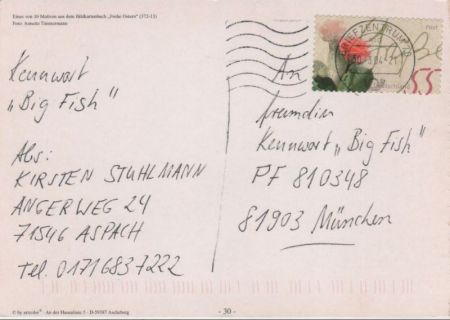 Eines von 30 Motiven aus dem Bildkartenbuch „Frohe Ostern" (372-12)
Foto: Annette Timmermann
Kennwort
„Big Fish"
Abs:
KIRSTEN STUHLMANN
ANGERWEG 24
71546 ASPACH
Tel. 01716837222
BRIEFZENTRUM
Post
Deutschland
55
An
freundin
Kennwort „Big Fish"
PF 810348
81903 München
© by artcolor® · An der Hansalinie 5 · D-59387 Ascheberg
- 30 -